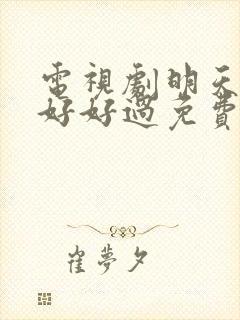 電視劇明天
好好過免費
崔夢夕